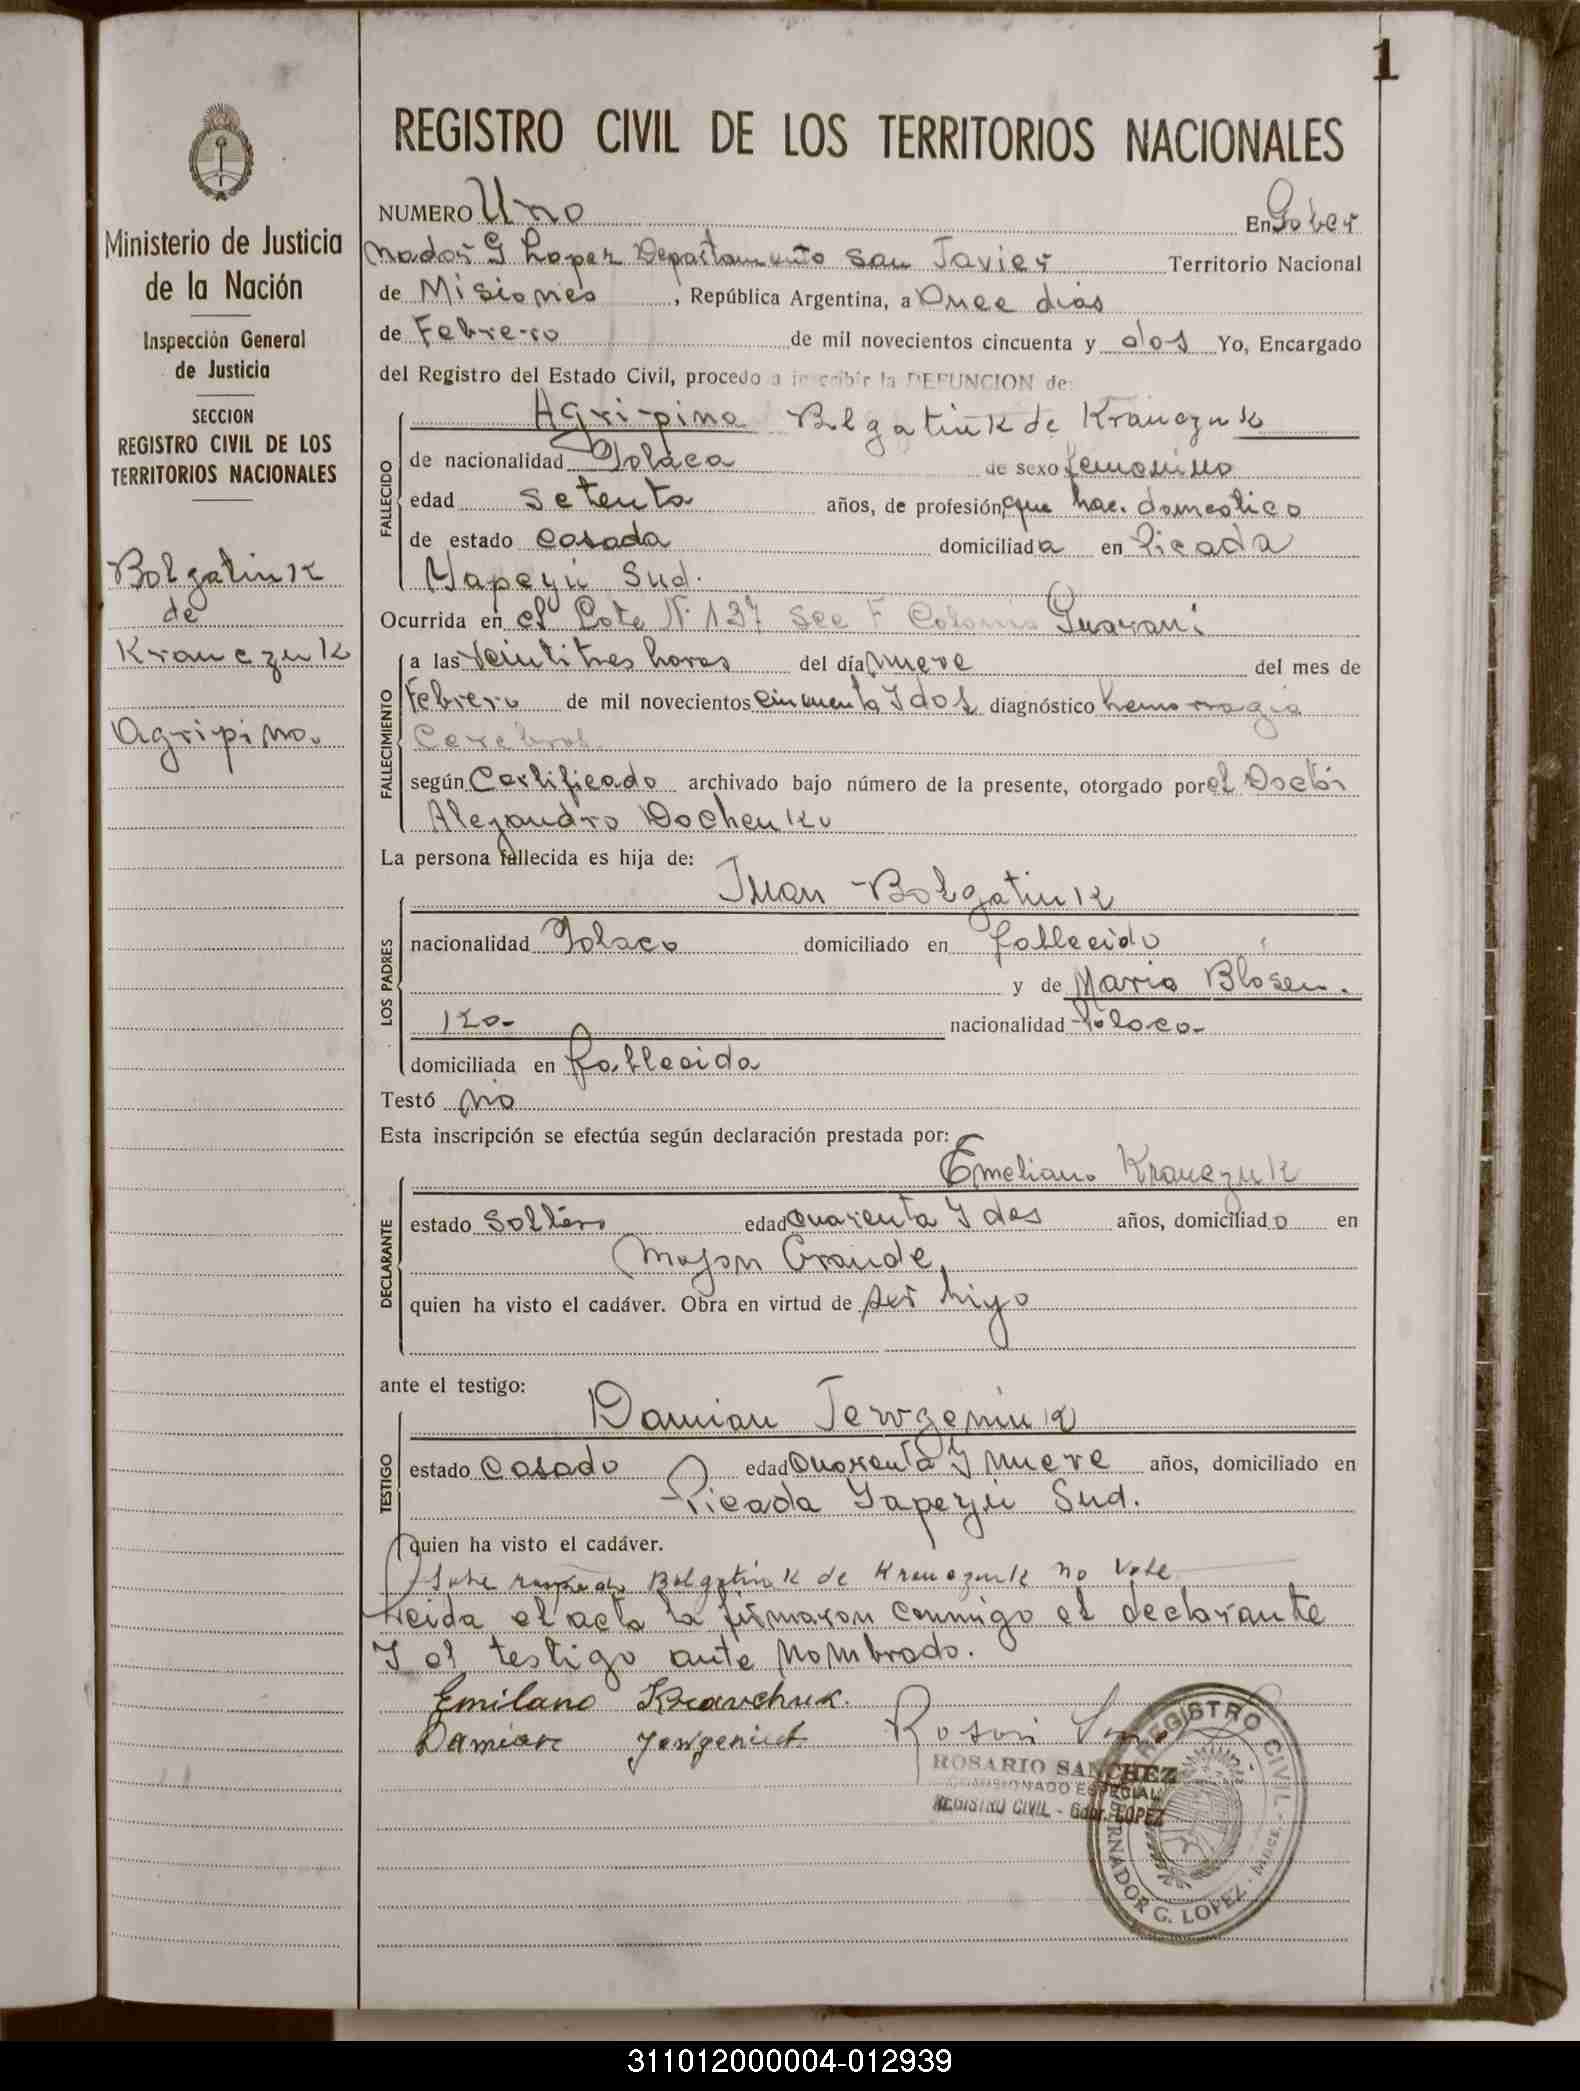 1
REGISTRO CIVIL DE LOS TERRITORIOS NACIONALES
Ministerio de Justicia
de la Nación
Inspección General
de Justicia
SECCION
REGISTRO CIVIL DE LOS
TERRITORIOS NACIONALES
Bolgatiuk
de
Krauczuk
Agripina.
NUMERO Uno En Gober
nador G Lopez Departamento San Javier Territorio Nacional
de Misiones, República Argentina, a Once dias
de Febrero de mil novecientos cincuenta y dos Yo, Encargado
del Registro del Estado Civil, procedo a inscribir la DEFUNCION de:
Agripina Bolgatiuk de Krauczuk
FALLECIDO
de nacionalidad Polaca de sexo femenino
edad setenta años, de profesión, que hac. domestico
de estado casada domiciliada en Picada
Yapeyú Sud.
Ocurrida en el Lote Nº 137 Sec F Colonia Guarani
FALLECIMIENTO
a las veintitres horas del día nueve del mes de
Febrero de mil novecientos cincuenta y dos diagnóstico hemorragia
Cerebral
según Certificado archivado bajo número de la presente, otorgado por el Doctor
Alejandro Dochenko
La persona fallecida es hija de:
Juan Bolgatiuk
LOS PADRES
nacionalidad Polaco domiciliado en fallecido
y de Maria Blosen.
ko- nacionalidad Polaca-
domiciliada en fallecida
Testó no
Esta inscripción se efectúa según declaración prestada por:
Emeliano Krauczuk
DECLARANTE
estado soltero edad cuarenta y dos años, domiciliado en
Mojon Grande,
quien ha visto el cadáver. Obra en virtud de ser hijo
ante el testigo:
Damian Jewgeniuk
TESTIGO
estado casado edad cuarenta y nueve años, domiciliado en
Picada Yapeyú Sud.
quien ha visto el cadáver.
Sobre raspado Bolgatiuk de Krauczuk no Vale
Leida el acta la firmaron conmigo el declarante
y el testigo ante nombrado.
Emilano Kravchuk.
Damian Jewgeniuk
ROSARIO SANCHEZ
COMISIONADO ESPECIAL
REGISTRO CIVIL - Gdor. LOPEZ
REGISTRO CIVIL
GOBERNADOR G. LOPEZ - Mnes.
311012000004-012939